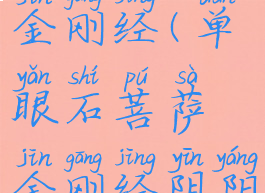 金刚经(单
yǎn shí pú sà
眼石菩萨
jīn gāng jīng yīn yáng
金刚经阴阳